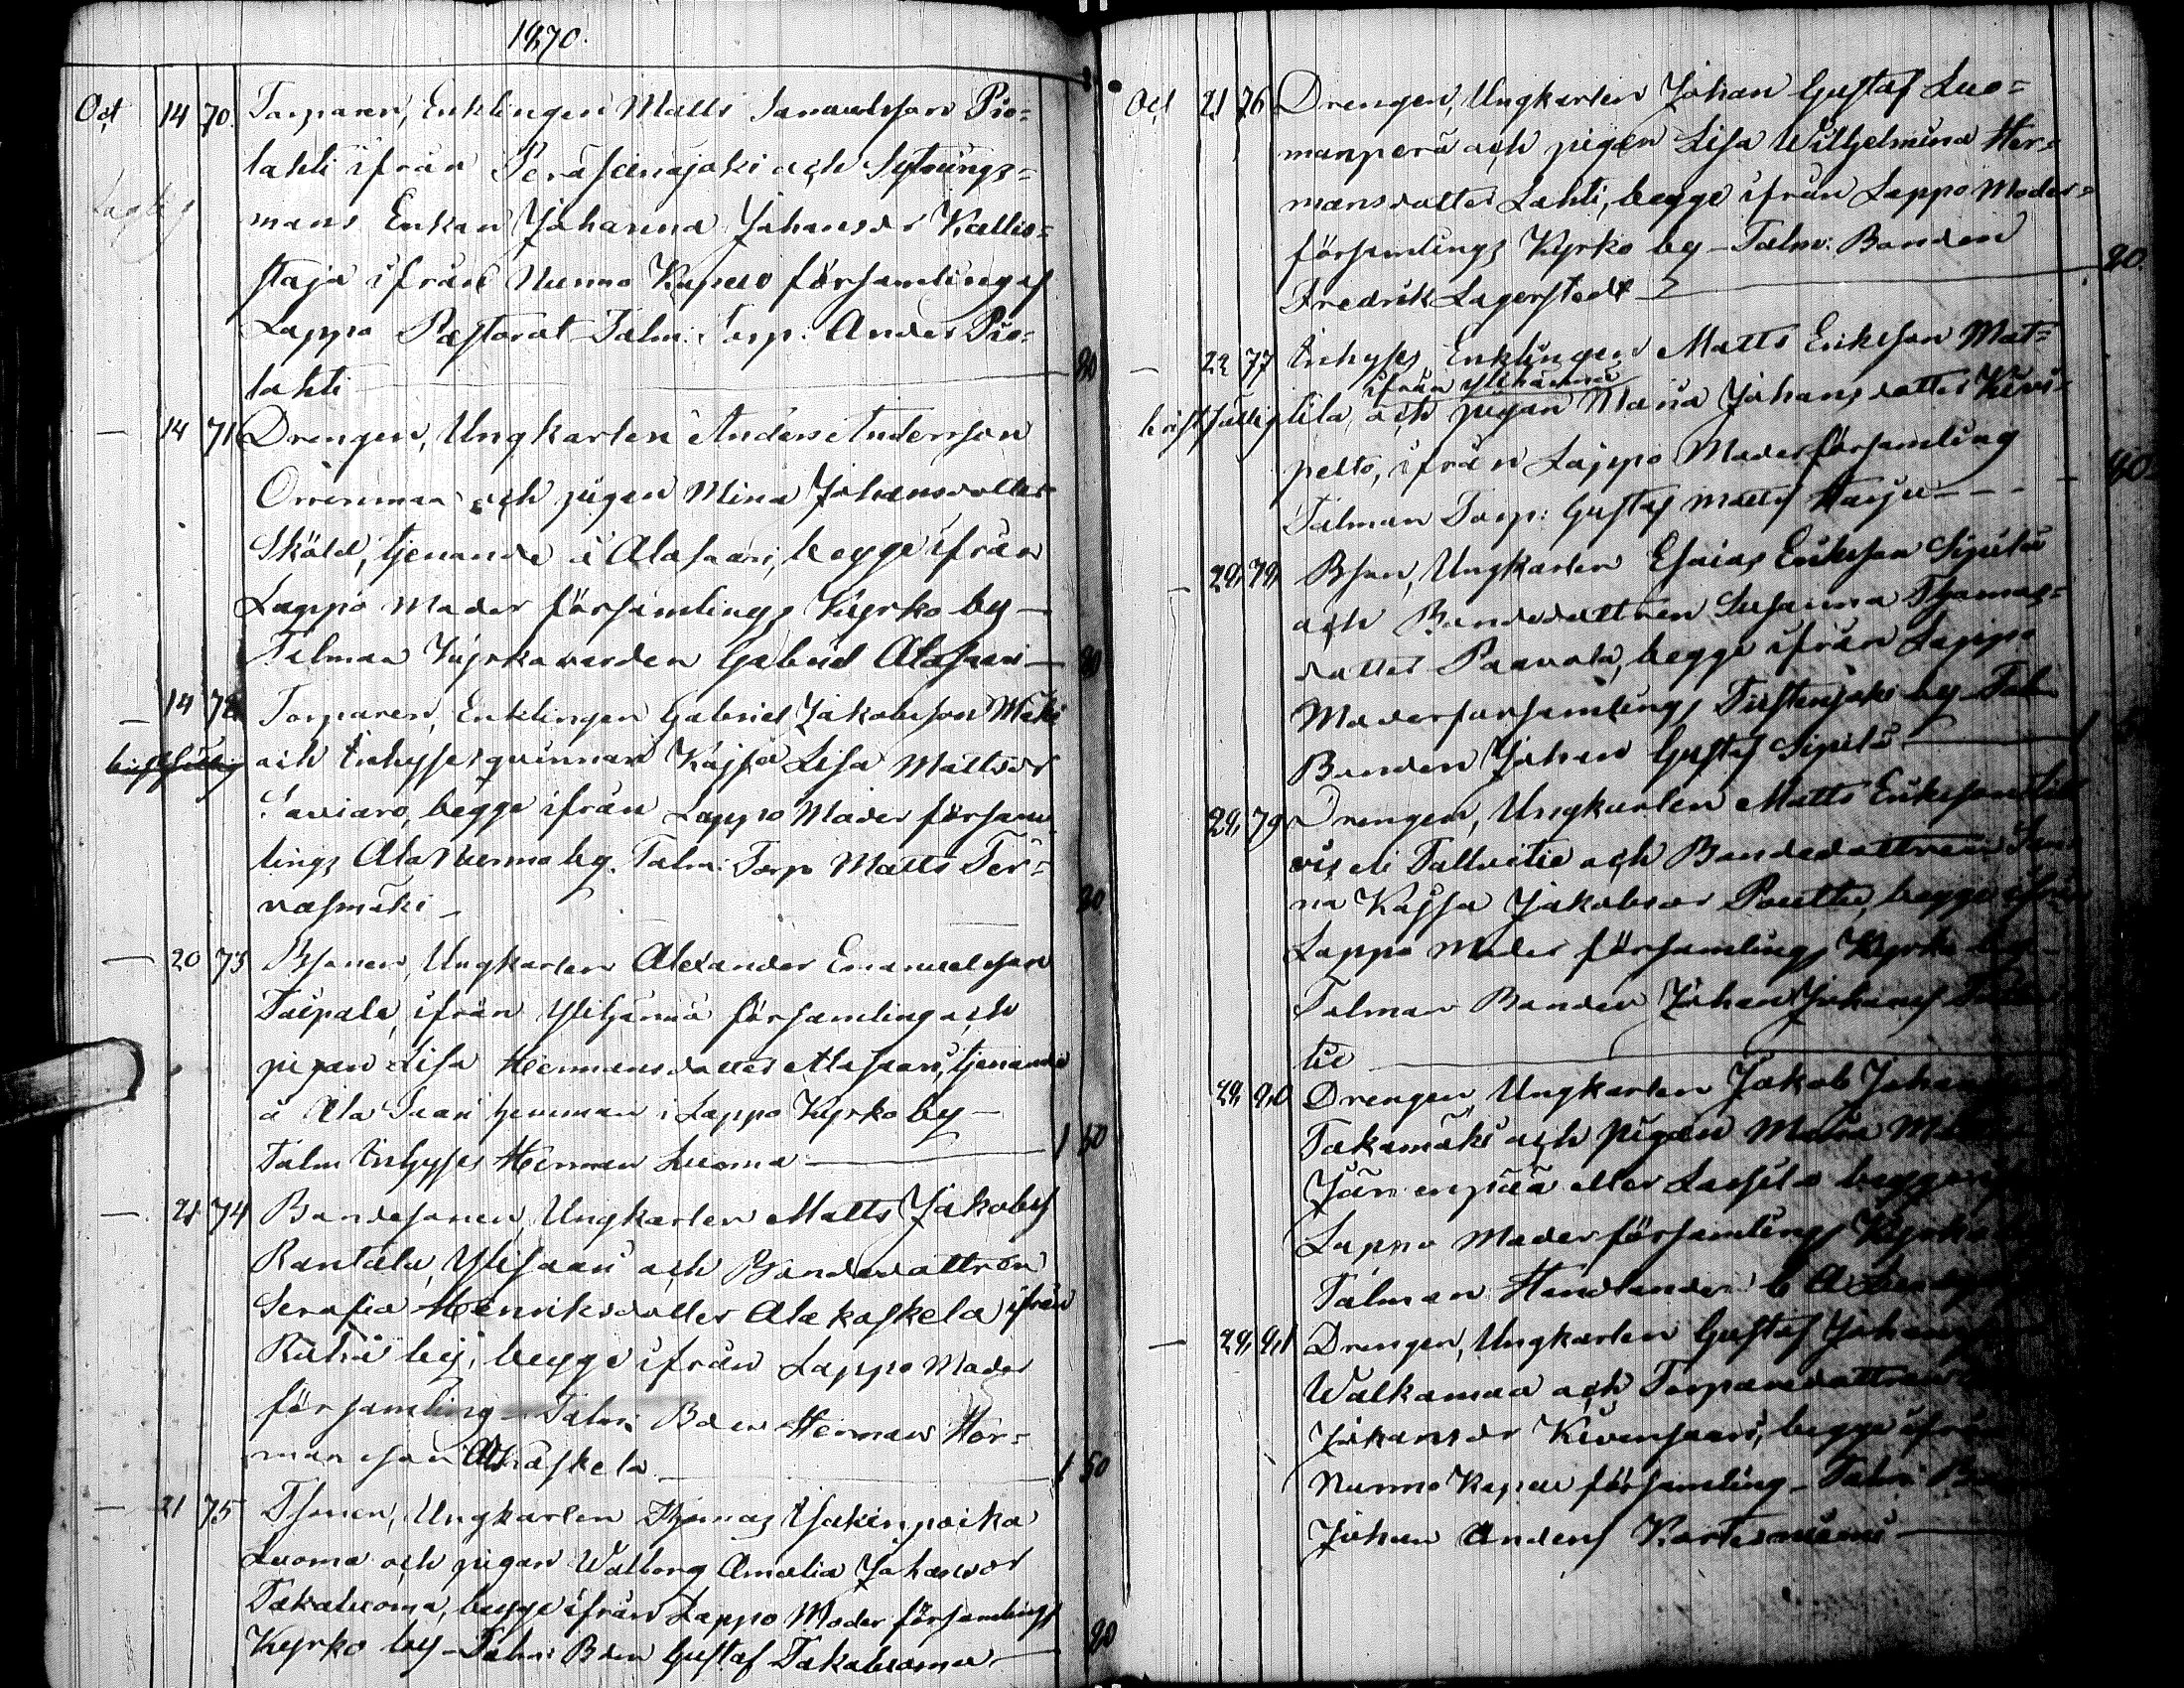 1870.
Oct 14 70. Torparen, Enklingen Matts Samuelsson Pio=
lahti ifrån Peräseinäjoki och Sytnings=
mans Enkan Johanna Johansdr Kallio=
staja ifrån Nurmo Kapell församling af
Lappo Pastorat Talm: Torp: Anders Pio=
lahti 80
— 14 71 Drengen, Ungkarlen Anders Andersson
Orrenmaa och pigan Mina Johansdotter
Sköld, tjenande å Alasaari, begge ifrån
Lappo Moder församlings Kyrko by —
Talman Kyrkovärden Gabriel Alasaari — 80
— 14 72 Torparen, Enklingen Gabriel Jakobsson Mäki
och Inhyses qvinnan Kajsa Lisa Mattsdr
Saviaro, begge ifrån Lappo Moder försam=
lings Ala Nurmo by. Talm: Torp Matts Ter=
vasmäki — 80.
— 20 73 Bsonen, Ungkarlen Alexander Emanuelsson
Taipale, ifrån Ylihärmä församling och
pigan Lisa Hermansdotter Alasaari, tjenande
å Ala Saari hemman i Lappo Kyrko by —
Talm Inhyses Herman Luoma — 1 50
— 21 74 Bondesonen, Ungkarlen Matts Jakobss
Rantala, Ylisaari och Bondedottren
Serafia Henriksdotter Alakaskela ifrån
Ruha by, begge ifrån Lappo Moder
församling — Talm: Bden Herman Her=
mansson Alakaskela 1 50
— 21 75 Tsonen, Ungkarlen Thomas Isakinpoika
Luoma och pigan Walborg Amalia Johansdr
Takaluoma, begge ifrån Lappo Moder församlings
Kyrko by — Talm: Bden Gustaf Takaluoma — 80
Oct 21 76 Drengen, Ungkarlen Johan Gustaf Luo=
manperä och pigan Lisa Wilhelmina Her=
mansdotter Lahti, begge ifrån Lappo Moder=
församlings Kyrko by — Talm: Bonden
Fredrik Lagerstedt 80.
— 22 77 Inhyses Enklingen Matts Eriksson Mat=
ifrån Ylihärmä
tila, och pigan Maria Johansdotter Kivi=
pelto, ifrån Lappo Moderförsamling
Talman Torp: Gustaf Matts Harju - - - 80.
— 28 78 Bson, Ungkarlen Esaias Eriksson Sipilä
och Bondedottren Susanna Thomas=
dotter Paavola, begge ifrån Lappo
Moderförsamlings Tiistenjoki by — Talm
Bonden Johan Gustaf Sipilä 1
28 79 Drengen, Ungkarlen Matts Eriksson
eli Tallvitie och Bondedottren San
na Kajsa Jakobsdr Pouttu, begge ifrån
Lappo Moder församlings Kyrko by
Talman Bonden Johan Johanss
tie
28 80 Drengen Ungkarlen Jakob
Takamäki och pigan Maria
Järvenpää eller Lassila begge
Lappo Moderförsamlings Kyrko
Talman Handlanden
— 28 81 Drengen, Ungkarlen Gustaf
Walkamaa och Torparedottren
Johansdr Kivensaari, begge ifrån
Nurmo Kapell församling — Talm:
Johan Anderss Kortesniemi —